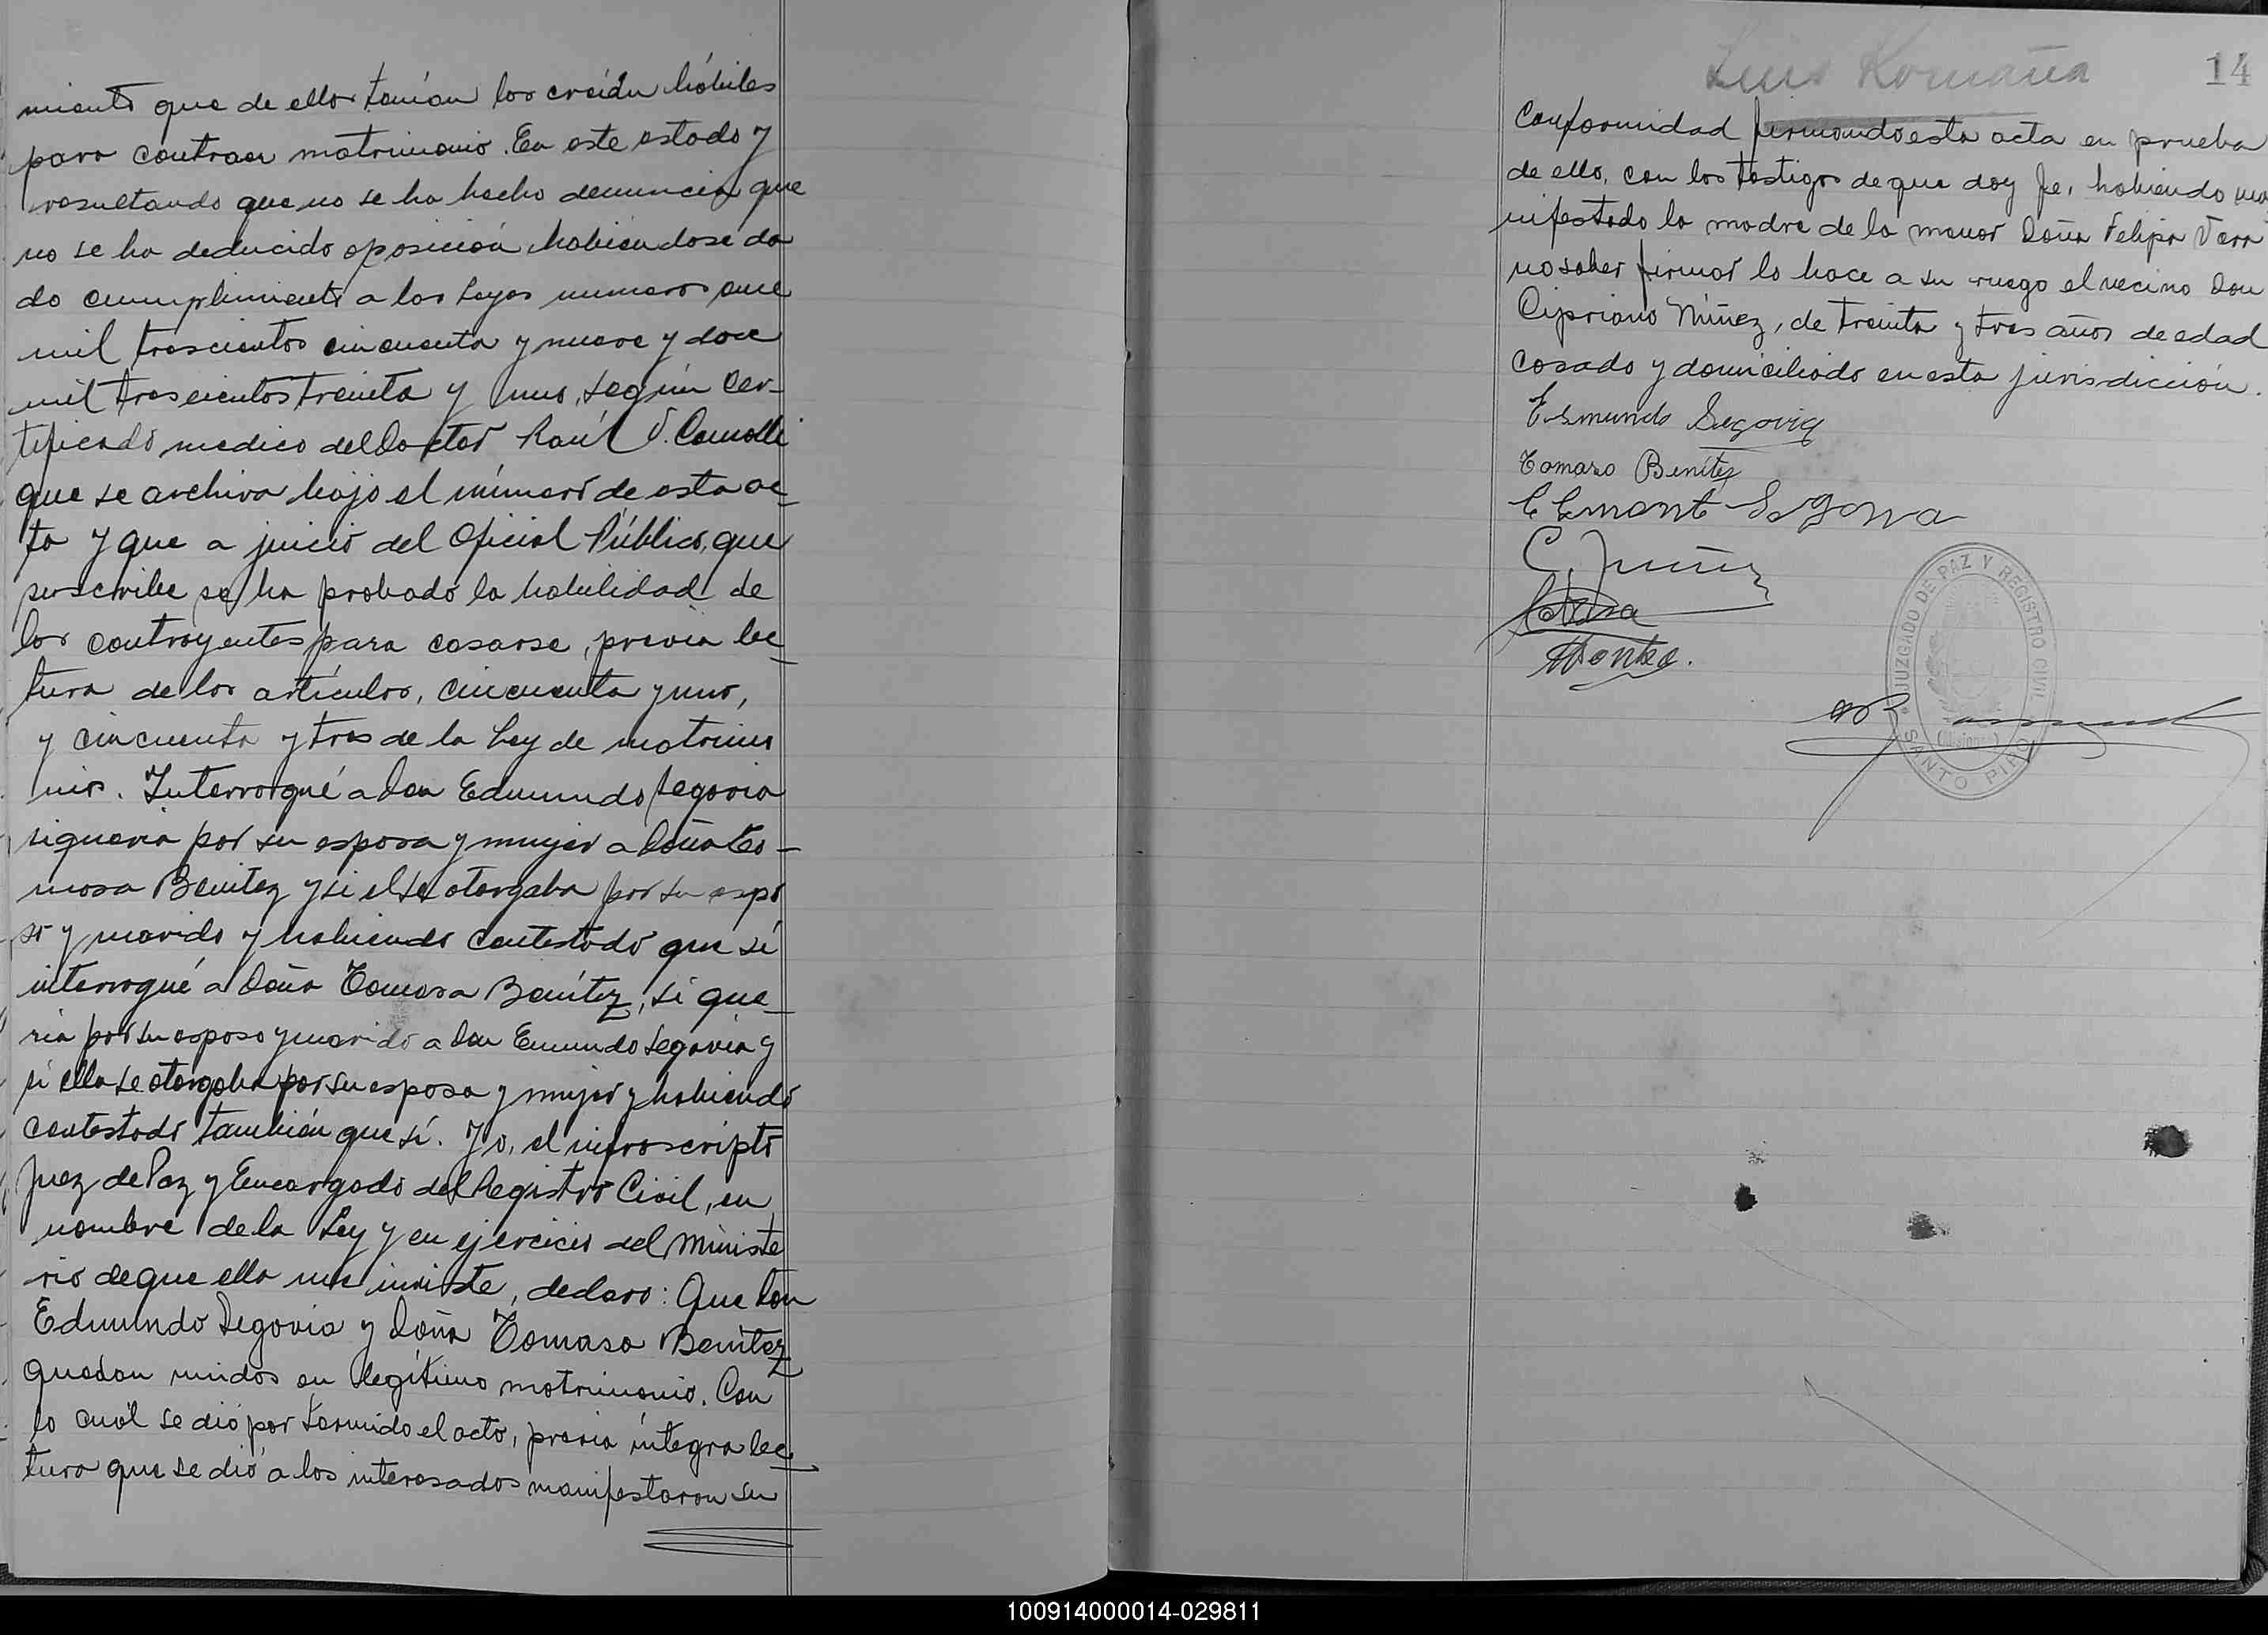 miento que de ellos tenían los creídu hábiles
para contraer matrimonio. En este estado y
resultando que no se ha hecho denuncia que
no se ha deducido oposición, habiéndose da
do cumplimiento a las Leyes numeros once
mil trescientos cincuenta y nueve y doce
mil trescientos treinta y uno, según cer-
tificado medico del Doctor Raúl
que se archiva bajo el número de esta ac-
ta y que a juicio del Oficial Público, que
suscribe se ha probado la habilidad de
los contrayentes para casarse, previa lec-
tura de los artículos, cincuenta y uno,
y cincuenta y tres de la Ley de matrimo
nio. Interrogué a Don Edmundo Segovia
si queria por su esposa y mujer a Doña To-
masa Benitez y si el se otorgaba por su espo
so y marido y habiendo contestado que sí
interrogué a Doña Tomasa Benítez, si que-
ria por su esposo y marido a Don Emundo Segovia y
si ella se otorgaba por su esposa y mujer y habiendo
contestado también que sí. Yo, el infrascripto
Juez de Paz y Encargado del Registro Civil, en
nombre de la Ley y en ejercicio del Ministe
rio de que ella me inviste, declaro: Que Don
Edmundo Segovia y Doña Tomasa Benítez
quedan unidos en legítimo matrimonio. Con
lo cuál se dió por termido el acto, previa íntegra lec-
tura que se dió a los interesados manifestaron su
Luis Romaña
14
Conformidad firmando esta acta en prueba
de ello, con los testigos de que doy fe, habiendo ma
nifestado la madre de la menor Doña Felipa Vera
no saber firmar lo hace a su ruego el vecino Don
Cipriano Núñez, de treinta y tres años de edad
casado y domiciliado en esta jurisdicción.
Esmundo Segovia
Tomasa Benítez
Segovia
C.
JUZGADO DE PAZ Y REGISTRO CIVIL
(Misiones)
SANTO PIPO
100914000014-029811